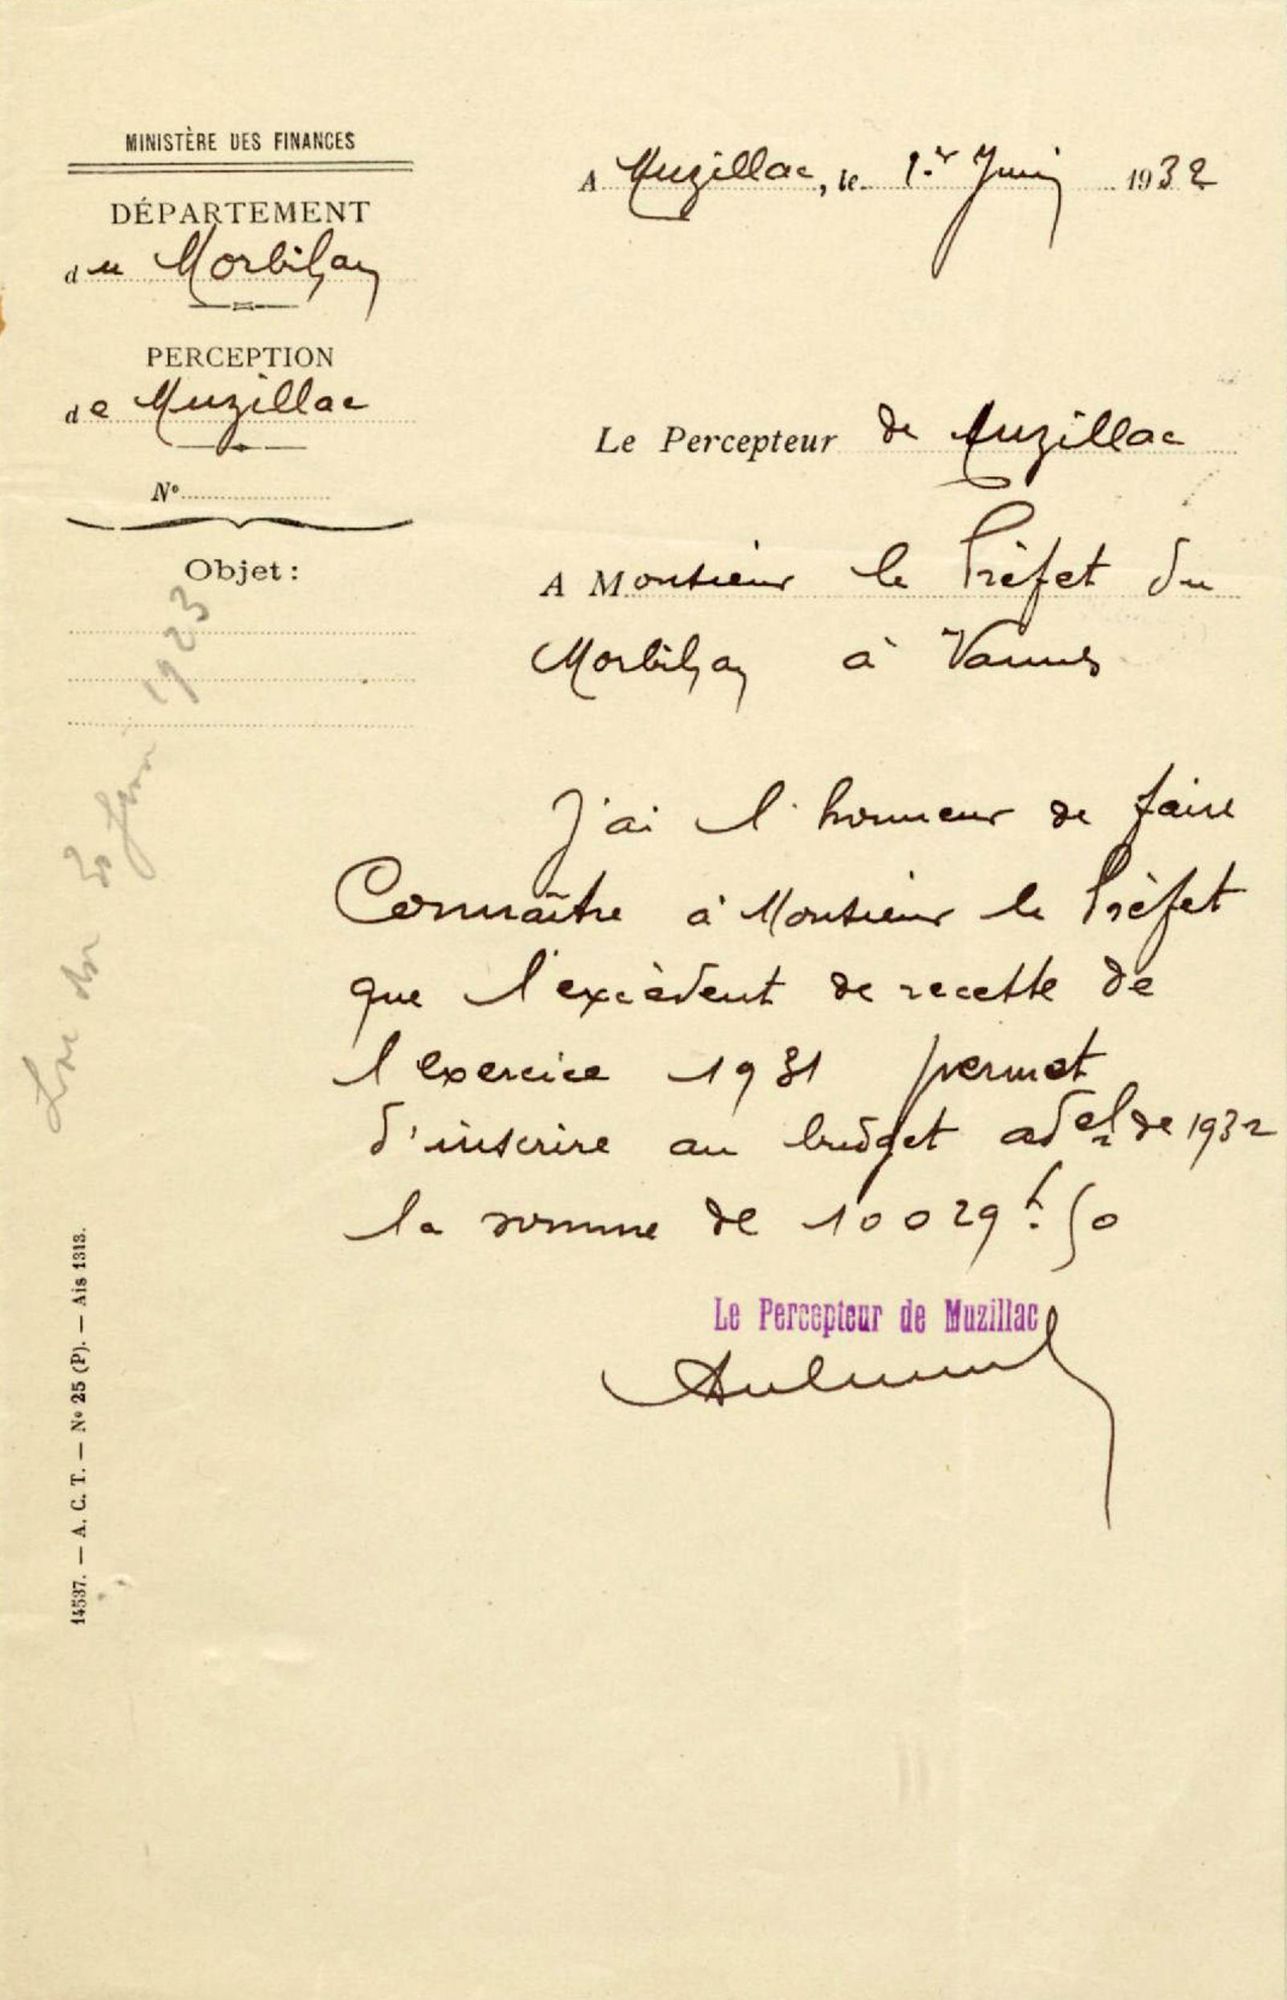 MINISTÈRE DES FINANCES
DÉPARTEMENT
du Morbihan
PERCEPTION
de Muzillac
N°
Objet :
A Muzillac, le 1er Juin 1932
Le Percepteur de Muzillac
A Monsieur le Préfet du
Morbihan à Vannes
J'ai l'honneur de faire
Connaître à Monsieur le Préfet
que l'excèdent de recette de
l'exercice 1931 permet
d'inscrire au budget adel de 1932
la somme de 10029f.50
Le Percepteur de Muzillac
Juin 1923
14537. — A. C. T. — N° 25 (P). — Ais 1313.